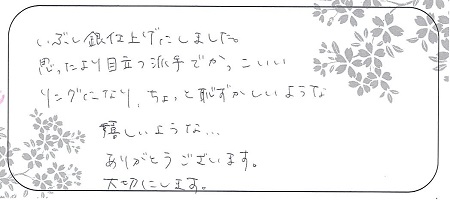 いぶし銀仕上げにしました。
思ったより目立つ派手でかっこいい
リングになり、ちょっと恥ずかしいような
嬉しいような…
ありがとうございます。
大切にします。